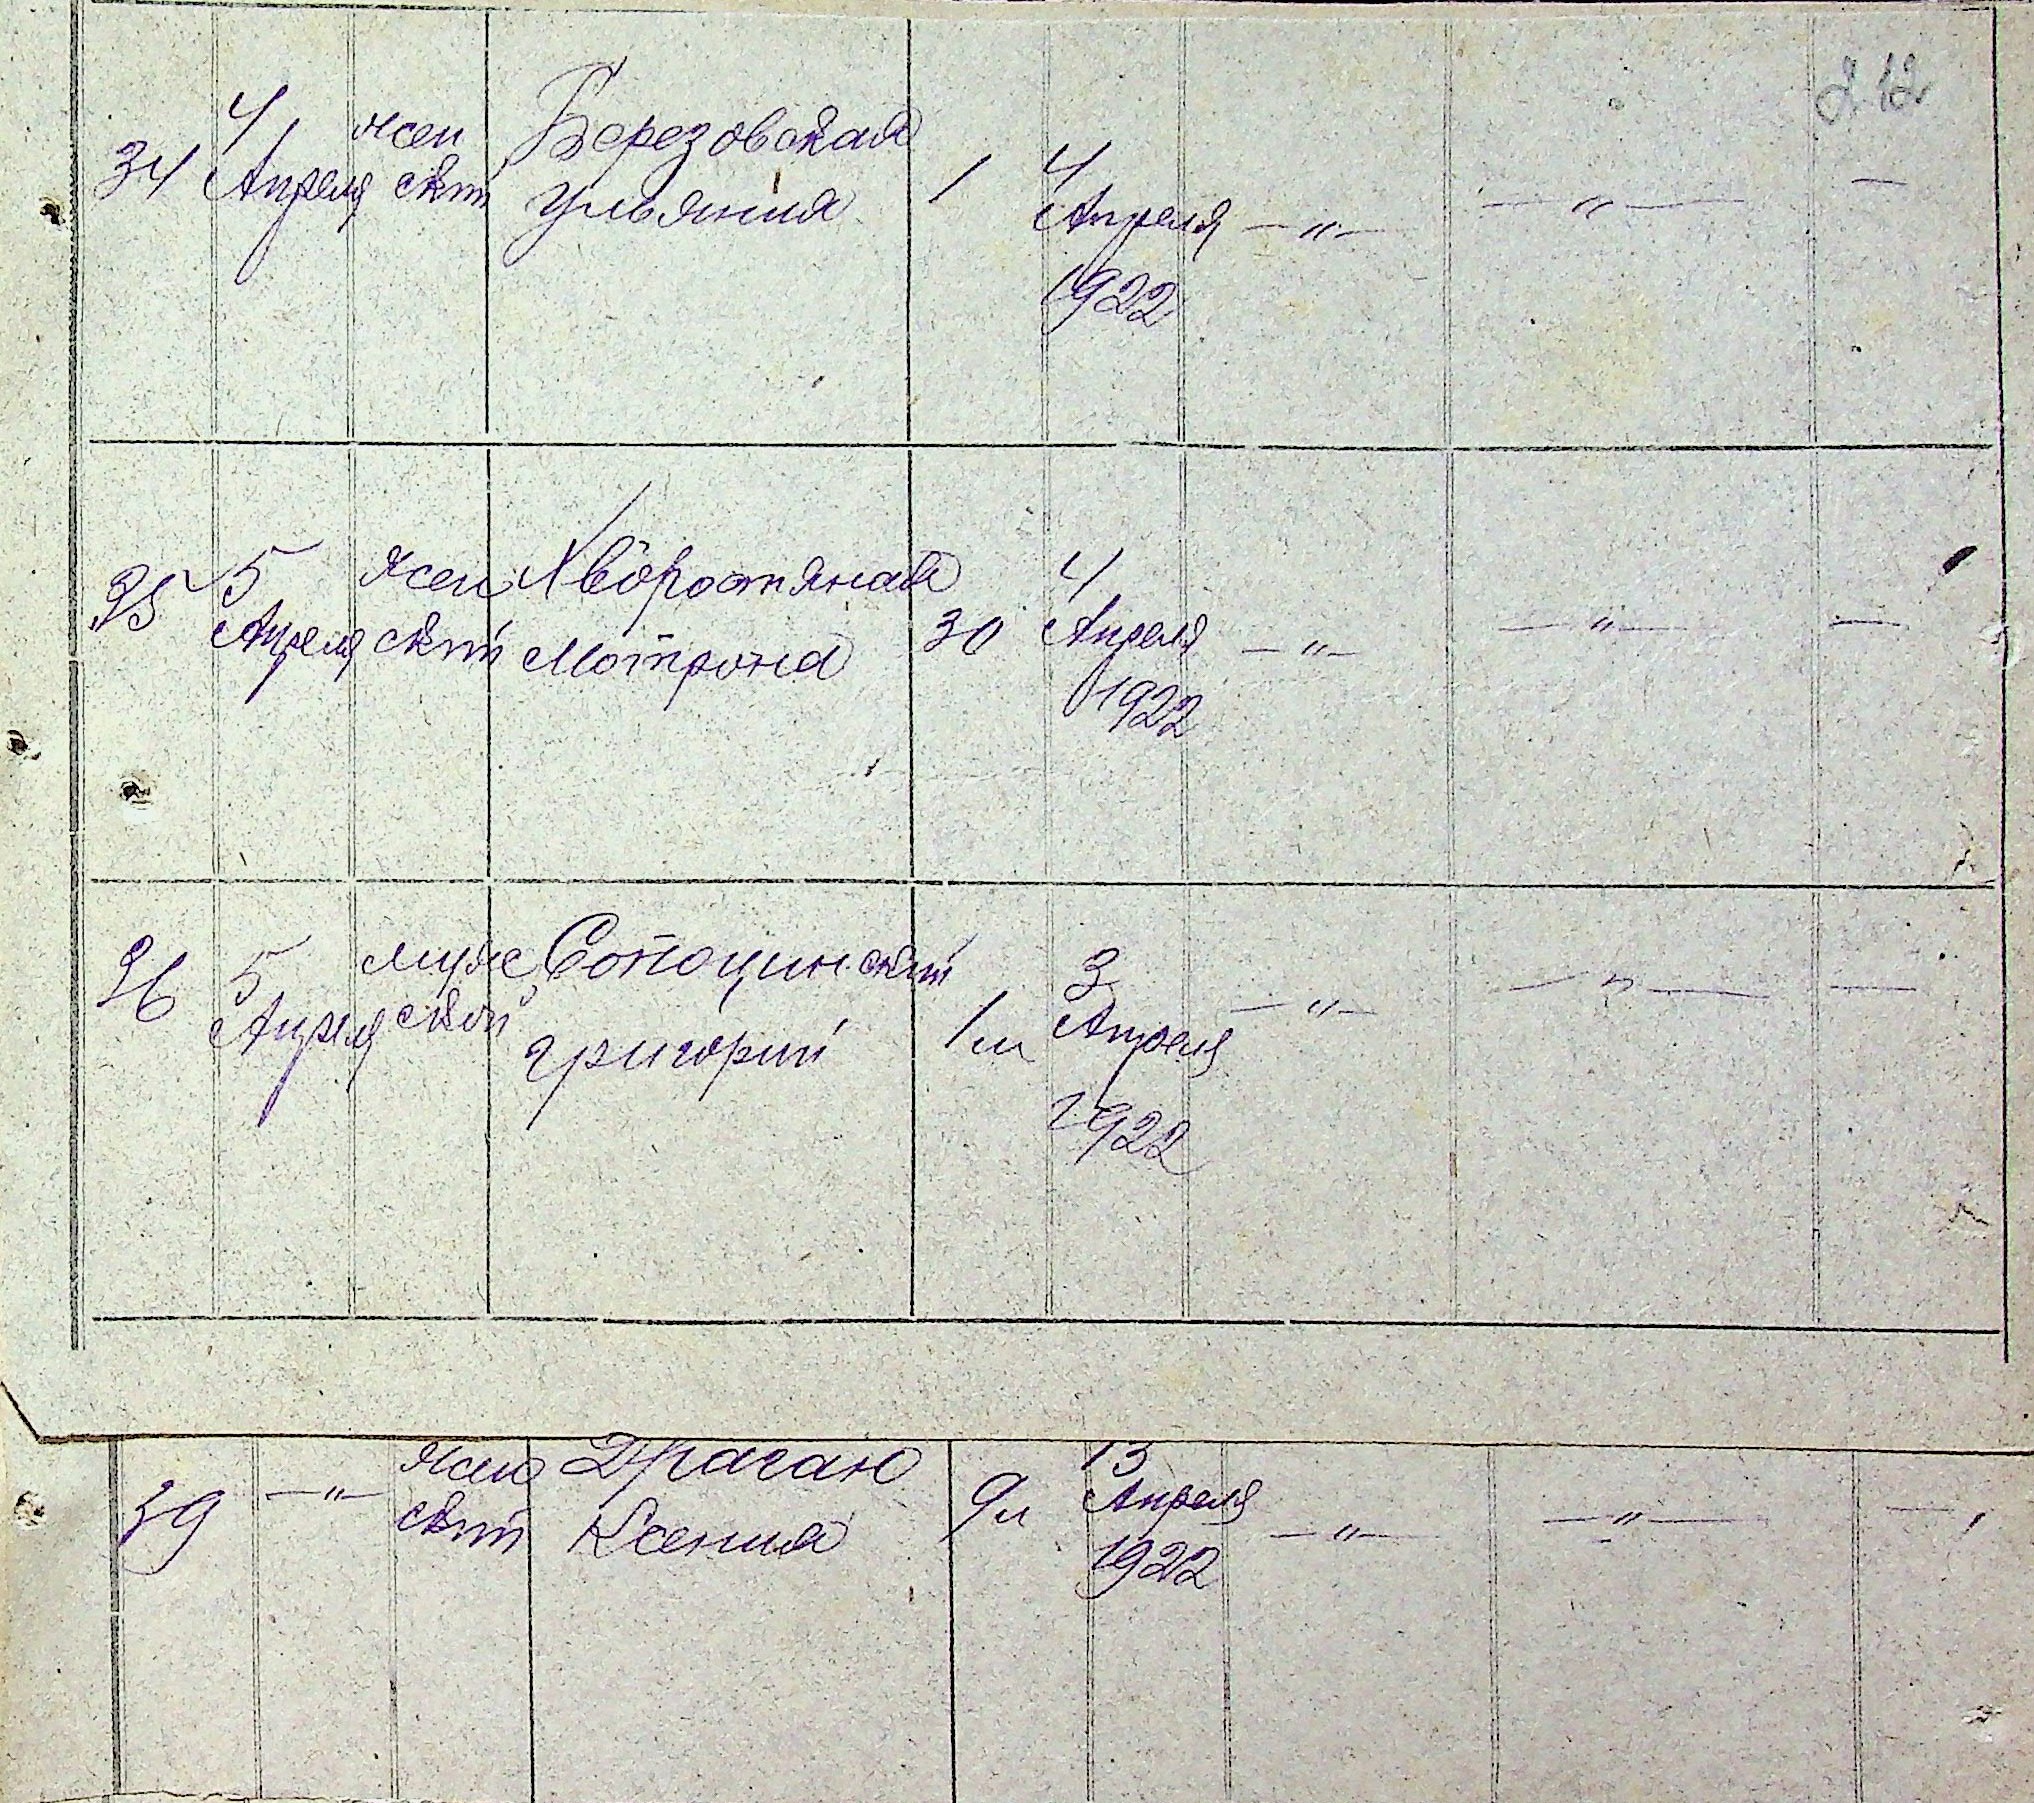 212
34 4 Апреля женский Березовская Ульяния 1 4 Апреля 1922 — " — — " — —
35 5 Апреля женский Хворостяная Мотрона 30 4 Апреля 1922 — " — — " — —
36 5 Апреля мужской Сотоцинский Григорий 1 м 3 Апреля 1922 — " — — " — —
39 — " — женский Драган Ксения 9 л 13 Апреля 1922 — " — — " — —